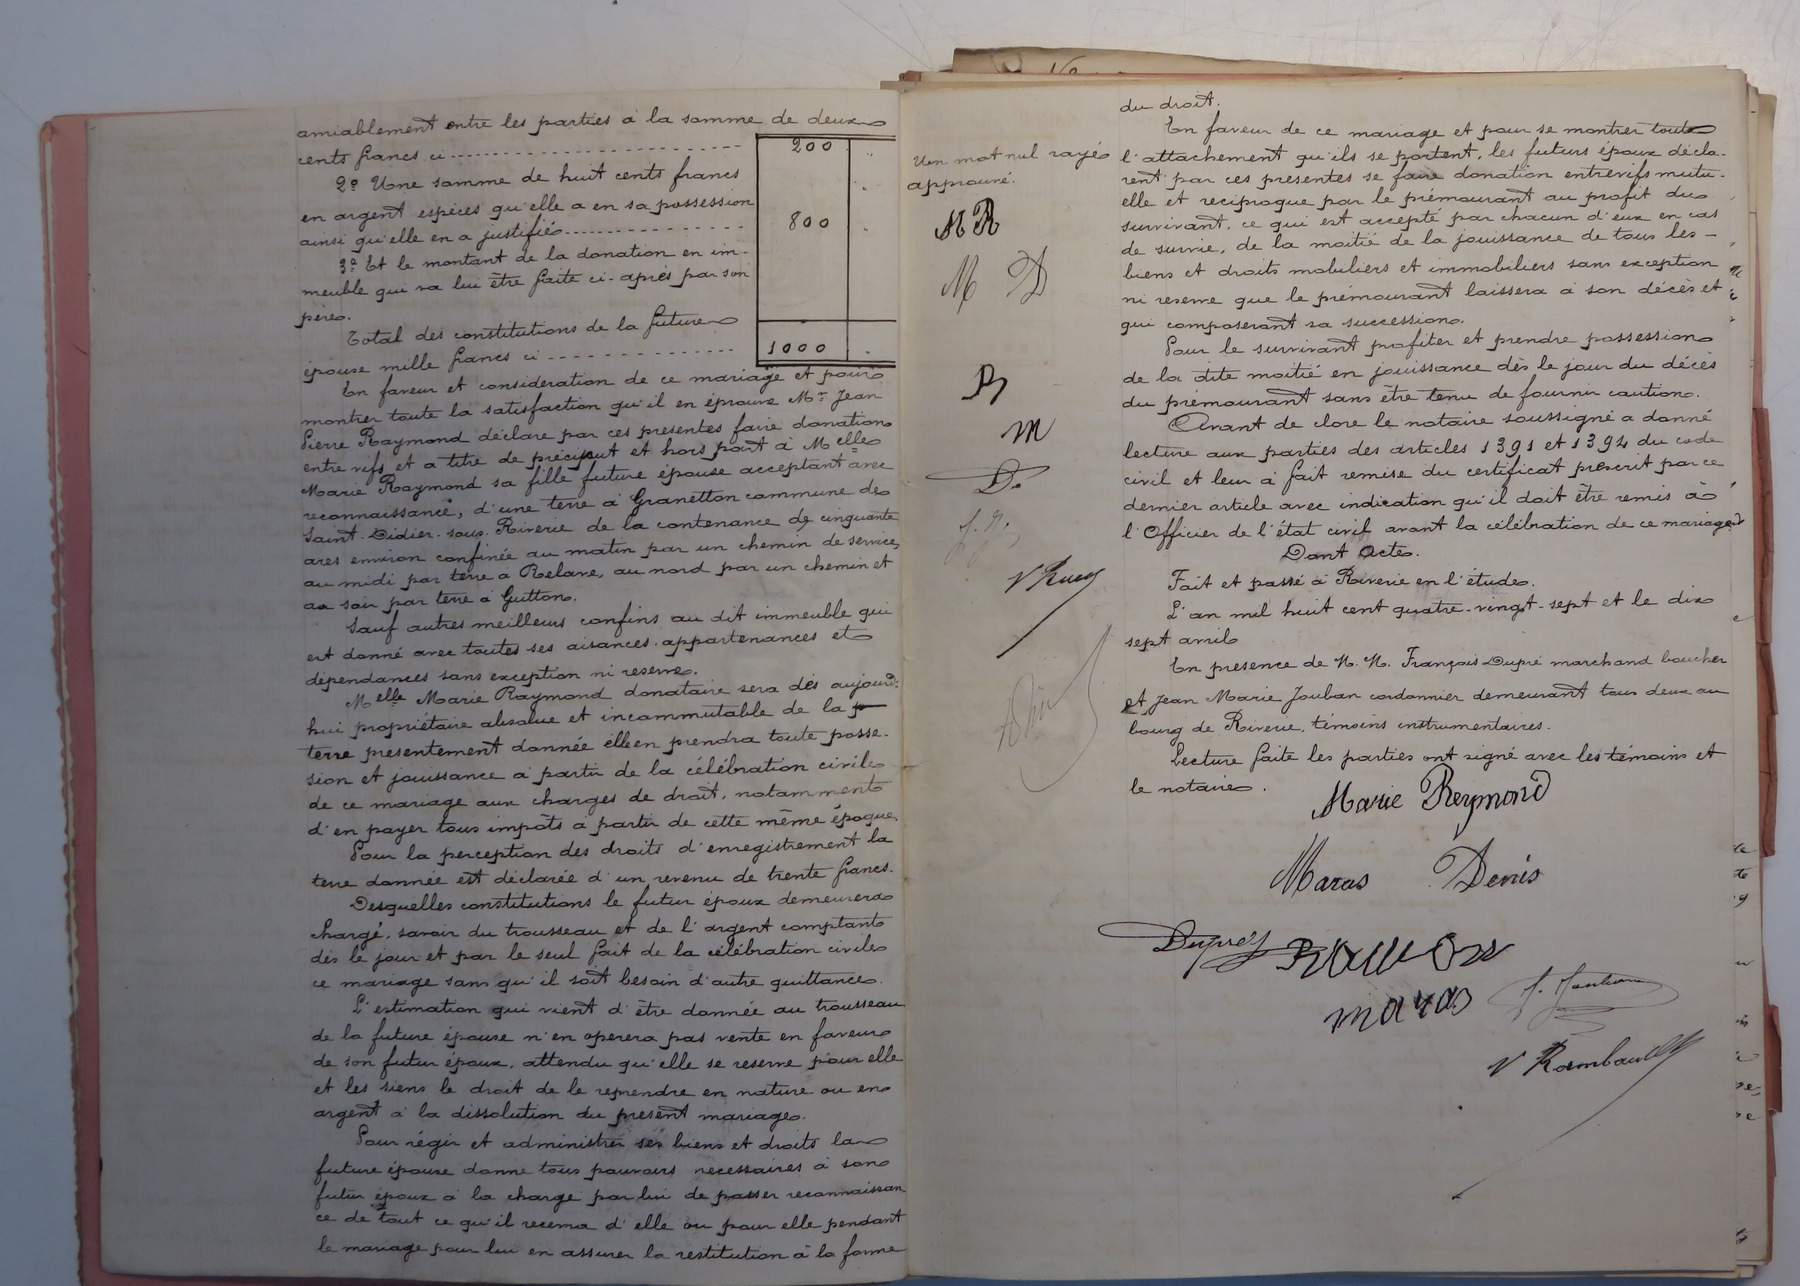 amiablement entre les parties à la somme de deux
cents francs ci 200
2° Une somme de huit cents francs
en argent espèces qu'elle a en sa possession
ainsi qu'elle en a justifié 800
3° Et le montant de la donation en im-
meuble qui va lui être faite ci-après par son
père.
Total des constitutions de la future
épouse mille francs ci 1000
En faveur et consideration de ce mariage et pour
montrer toute la satisfaction qu'il en éprouve Mr Jean
Pierre Raymond déclare par ces presentes faire donation
entre vifs et a titre de préciput et hors part à Melle
Marie Raymond sa fille future épouse acceptant avec
reconnaissance, d'une terre à Granetton commune de
Saint-Didier-sous-Riverie de la contenance de cinquante
ares environ confinée au matin par un chemin de service,
au midi par terre à Relave, au nord par un chemin et
au soir par terre à Guitton.
Sauf autres meilleurs confins au dit immeuble qui
est donné avec toutes ses aisances appartenances et
dépendances sans exception ni reserve.
Melle Marie Raymond donataire sera dès aujourd'
hui propriétaire absolue et incommutable de la
terre presentement donnée elle en prendra toute posse-
sion et jouissance à partir de la célébration civile
de ce mariage aux charges de droit, notamment
d'en payer tous impôts à partir de cette même époque
Pour la perception des droits d'enregistrement la
terre donnée est déclarée d'un revenu de trente francs.
Desquelles constitutions le futur époux demeurera
chargé, savoir du trousseau et de l'argent comptant
dès le jour et par le seul fait de la célébration civile
ce mariage sans qu'il soit besoin d'autre quittance.
L'estimation qui vient d'être donnée au trousseau
de la future épouse n'en operera pas vente en faveur
de son futur époux, attendu qu'elle se reserve pour elle
et les siens le droit de le reprendre en nature ou en
argent à la dissolution du présent mariage.
Pour régir et administrer ses biens et droits la
future épouse donne tous pouvoirs necessaires à son
futur époux à la charge par lui de passer reconnaissan
ce de tout ce qu'il recevra d'elle ou pour elle pendant
le mariage pour lui en assurer la restitution à la forme
du droit.
En faveur de ce mariage et pour se montrer tout
l'attachement qu'ils se portent, les futurs époux décla-
rent par ces présentes se faire donation entrevifs mutu-
elle et reciproque par le prémourant au profit du
survivant, ce qui est accepté par chacun d'eux en cas
de survie, de la moitié de la jouissance de tous les
biens et droits mobiliers et immobiliers sans exception
ni reserve que le prémourant laissera à son décès et
qui composeront sa succession.
Pour le survivant profiter et prendre possession
de la dite moitié en jouissance dès le jour du décès
du premourant sans être tenu de fournir caution.
Avant de clore le notaire soussigné a donné
lecture aux parties des articles 1391 et 1394 du code
civil et leur à fait remise du certificat prescrit par ce
dernier article avec indication qu'il doit être remis à
l'Officier de l'état civil avant la célébration de ce mariage
Dont Acte.
Fait et passé à Riverie en l'étude.
L'an mil huit cent quatre-vingt-sept et le dix
sept avril
En presence de M. M. François Dupré marchand boucher
et Jean Marie Jouban cordonnier demeurant tous deux au
bourg de Riverie, témoins instrumentaires.
Lecture faite les parties ont signé avec les témoins et
le notaire.
Un mot nul rayé
approuvé.
MR
M D
R
M
D.
Marie Reymond
Maras Denis
Dupré
maras
J. Jouban